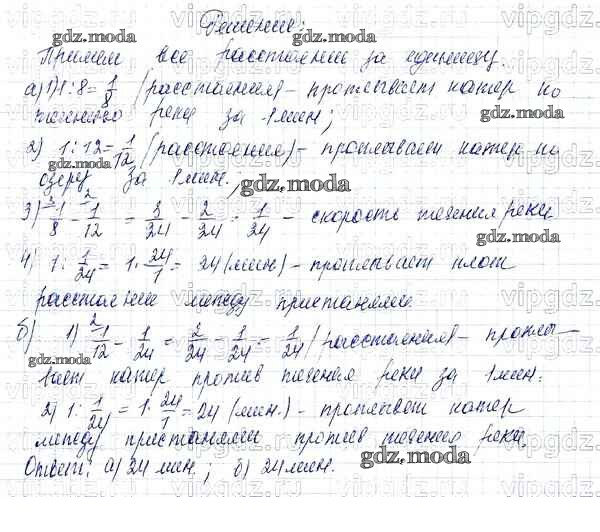 Решение:
Примем все расстояние за единицу.
а) 1) 1 : 8 = 1/8 (расстояния) – проплывает катер по
течению реки за 1 мин;
2) 1 : 12 = 1/12 (расстояния) – проплывает катер по
озеру за 1 мин.;
3) 1/8 - 1/12 = 3/24 - 2/24 = 1/24 – скорость течения реки
4) 1 : 1/24 = 1 · 24/1 = 24 (мин) – проплывает плот
расстояние между пристанями.
б) 1) 1/12 - 1/24 = 2/24 - 1/24 = 1/24 (расстояния) – проплы–
вает катер против течения реки за 1 мин.
2) 1 : 1/24 = 1 · 24/1 = 24 (мин.) – проплывает катер
между пристанями против течения реки.
Ответ: а) 24 мин.; б) 24 мин.
gdz.moda
vipgdz.ru